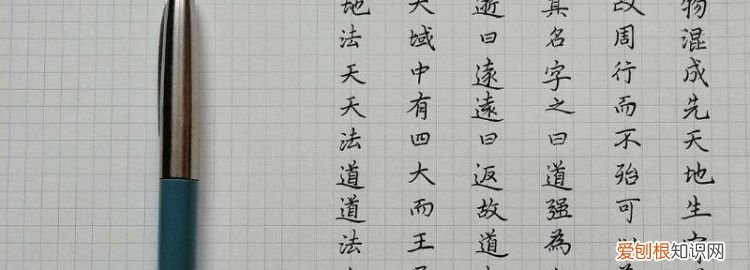 物混成先天地生
改周行而不殆可以
其名字之曰道強為
逝曰遠遠曰返故道
大域中有四大而王
地法天天法道道法
爱刨根知识网